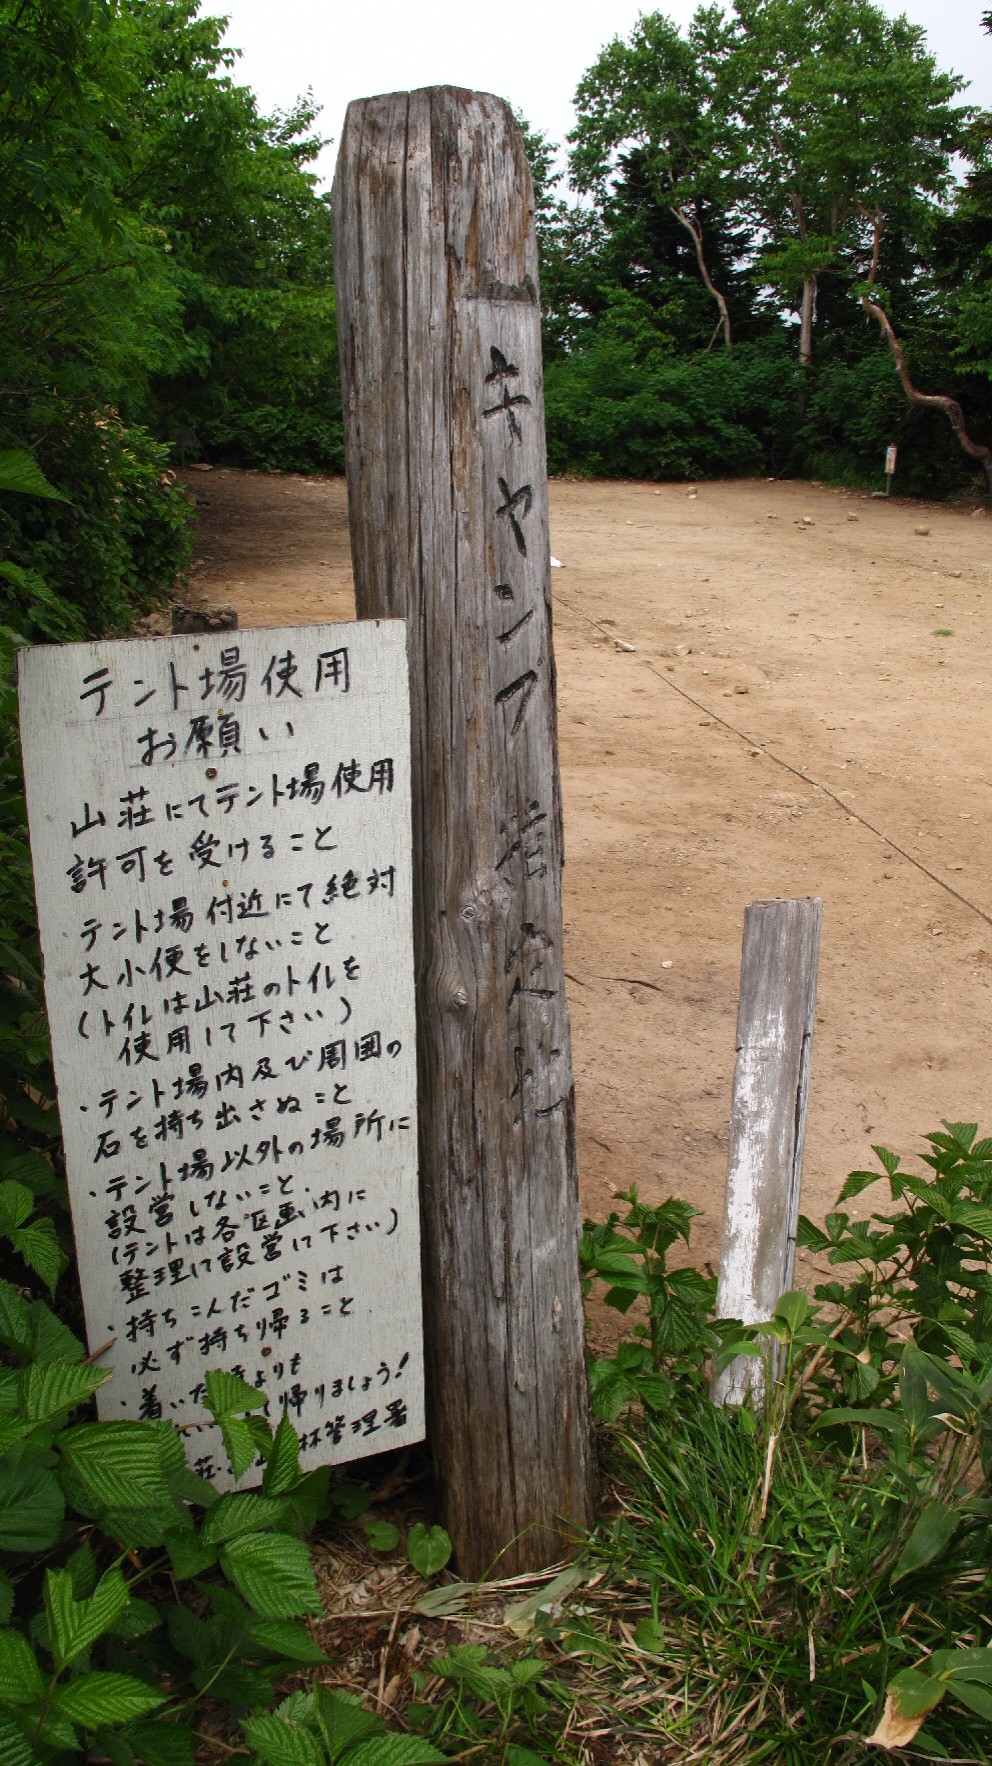 テント場使用
お願い
山荘にてテント場使用
許可を受けること
テント場付近にて絶対
大小便をしないこと
(トイレは山荘のトイレを
使用して下さい)
・テント場内及び周囲の
石を持ち出さぬこと
・テント場以外の場所に
設営しないこと
(テントは各区画内に
整理して設営して下さい)
・持ちこんだゴミは
必ず持ち帰ること
・着いた時よりも
帰りましょう!
荘 林管理署
キャンプ指定地